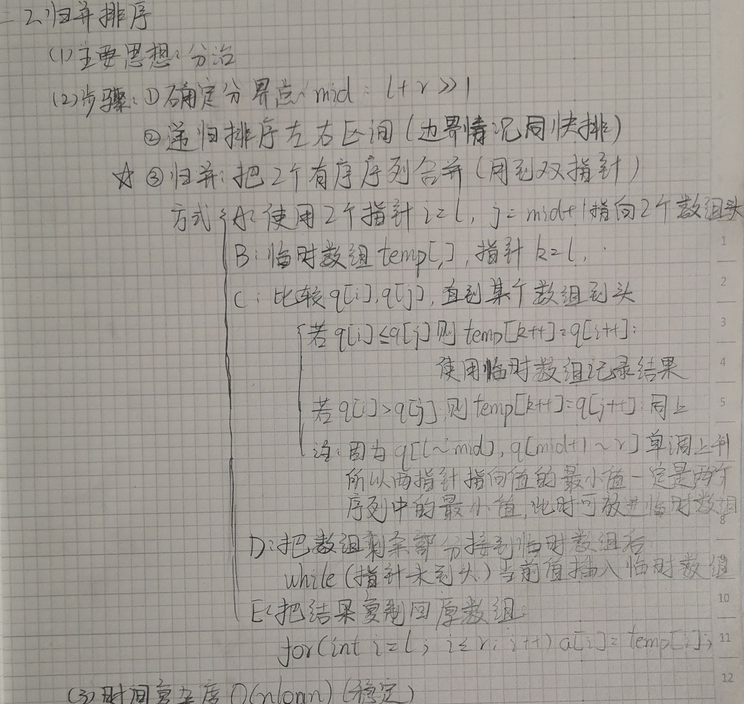 2.归并排序
(1)主要思想:分治
(2)步骤:①确定分界点:mid: l+r>>1
②递归排序左右区间(边界情况同快排)
☆③归并:把2个有序序列合并(用到双指针)
方式 A:使用2个指针i=l, j=mid+1指向2个数组头
B:临时数组temp[], 指针k=l,
C:比较q[i],q[j],直到某个数组到头
若q[i]≤q[j]则temp[k++]=q[i++];
使用临时数组记录结果
若q[i]>q[j],则temp[k++]=q[j++];同上
注:因为q[l~mid],q[mid+1~r]单调上升
所以两指针指向值的最小值一定是两个
序列中的最小值,此时可放进临时数组
D:把数组剩余部分接到临时数组后
while(指针未到头)当前值插入临时数组
E:把结果复制回原数组:
for(int i=l; i≤r; i++) a[i]=temp[i];
(3)时间复杂度O(nlogn)(稳定)
1
2
3
4
5
8
10
11
12